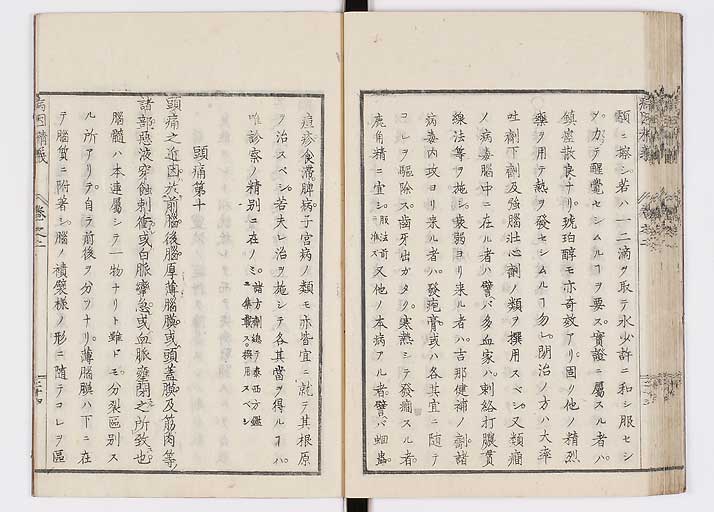 顳ニ擦シ若ハ一二滴ヲ取テ水少許ニ和シ服セシ
グカテ醒覺セシムルヿヲ要ス實證ニ屬スル者ハ
鎮痙散良ナリ琥珀醇モ亦奇效アリ固リ他ノ精烈
藥ヲ用テ熱ヲ發セシムルヿ勿レ閉治ノ方ハ大率
吐劑下劑及強腦壯心劑ノ類ヲ撰用スベシ又類癇
ノ病毒腦中ニ在ル者ハ譬バ多血家ハ刺絡打膿貫
線法等ヲ施シ衰弱ヨリ來ル者ハ吉那健補ノ劑諸
病毒内攻ヨリ來ル者ハ發疱膏或ハ各其宜ニ随テ
コレヲ驅除ス齒牙出ガタク寒熱シテ發癇スル者
鹿角精ニ宜シ服法前ニ准ス又他ノ本病アル者譬バ蛔蟲
痘疹食滯脾病子宮病ノ類モ亦皆宜ニ就テ其根原
ヲ治スベシ若夫レ治ヲ施シテ各其當ヲ得ルヿハ
唯診察ノ精別ニ在ノミ諸方劑總テ泰西方鑑ニ集載ス撰用スベシ
頭痛第十
頭痛之近因於前腦後腦厚薄腦膜或頭蓋膜及筋肉等
諸部惡液穿蝕刺衝或白脈攣急或血脈壅閉之所致也
腦髓ハ本連屬シテ一物ナリト雖ドモ分裂區別ス
ル所アリテ自ラ前後ヲ分ツナリ薄腦膜ハ下ニ在
テ腦質ニ附著シ腦ノ襀襞様ノ形ニ隨テコレヲ區